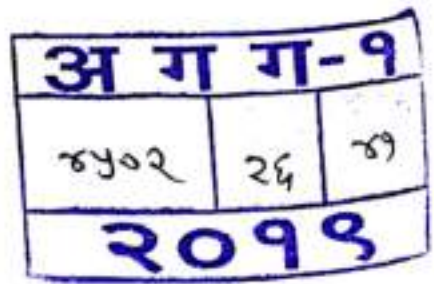 अ ग ग-१
४५०२ २६ ४१
२०१९